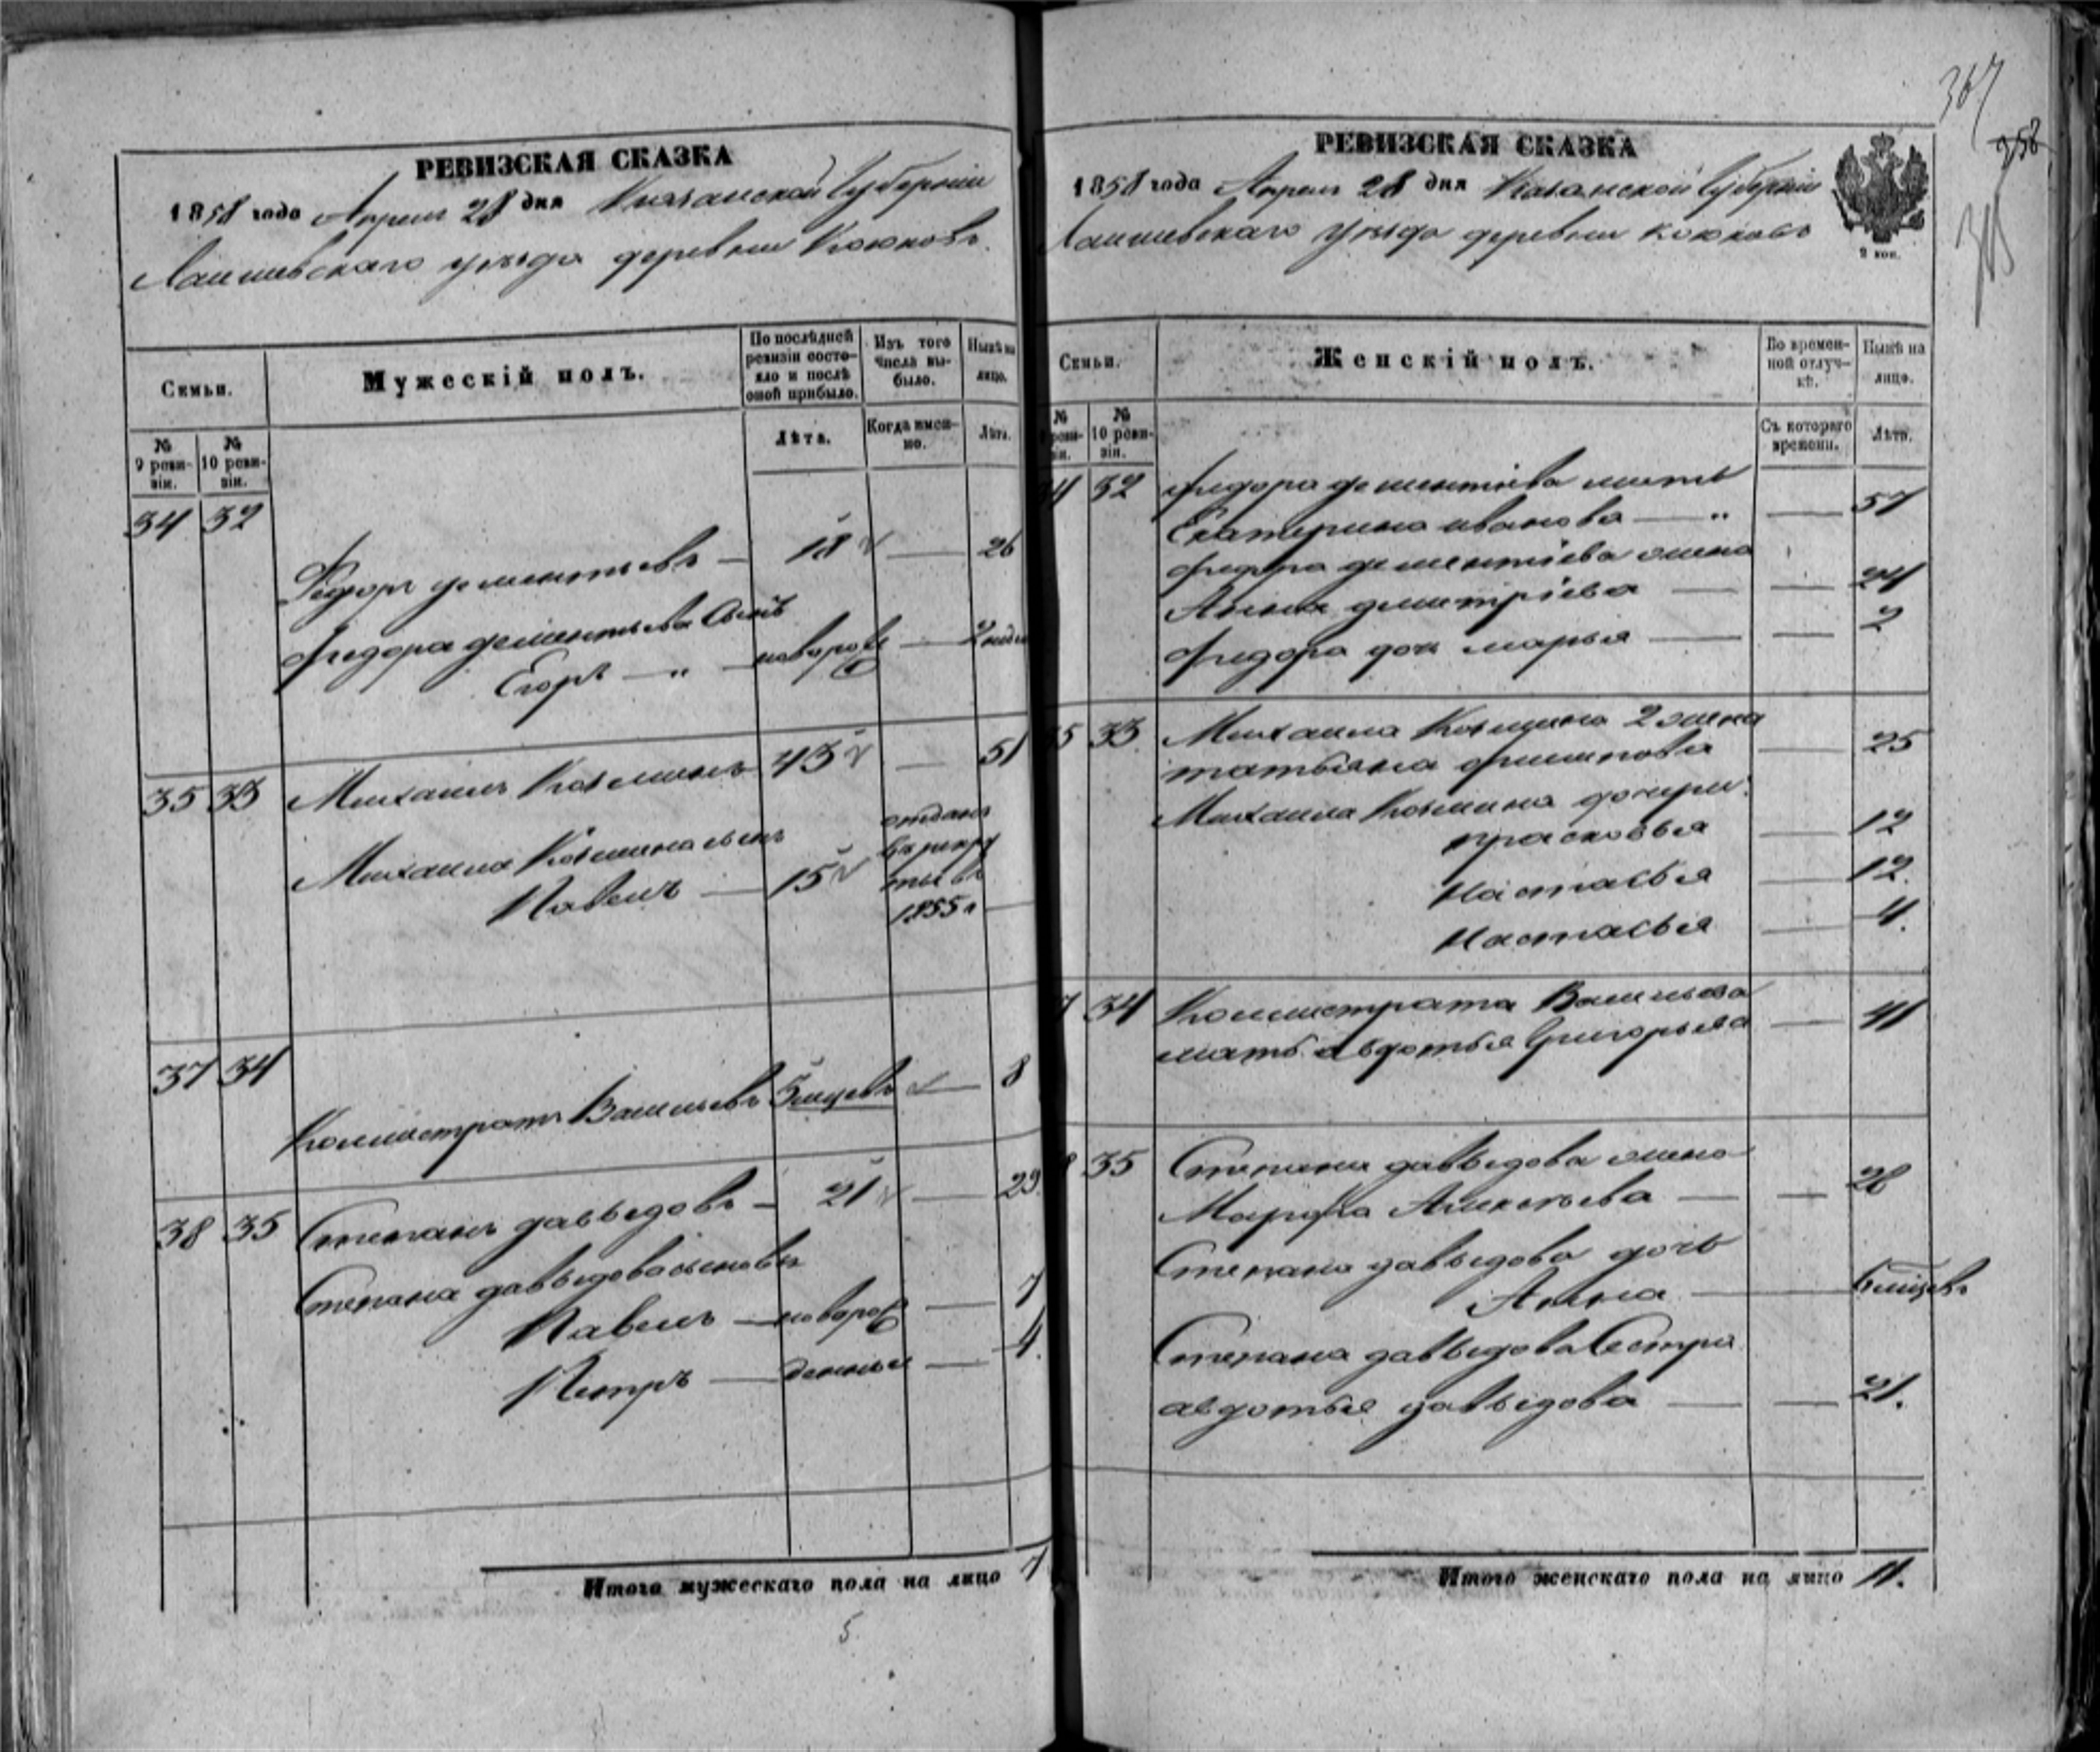 РЕВИЗСКАЯ СКАЗКА
1858 года Апреля 28 дня Казанской Губернии
Лаишевскаго уезда деревни Кокков
Семьи.
Мужескій полъ.
По послѣдней ревизіи состояло и послѣ оной прибыло.
Изъ того числа выбыло.
Нынѣ на лицо.
№ 9 ревизіи.
№ 10 ревизіи.
Лѣта.
Когда именно.
Лѣта.
34 32
Федоръ дементьевъ — 18 — 26
Федора дементьева сынъ
Егоръ — " — новорож — 2 неде
35 33 Михаилъ Козминъ 43 — 51
Михаила Козмина сынъ
Павелъ — 15 отданъ в рекруты въ 1855 г —
37 34
Коллистратъ Васильевъ 5 мцевъ — 8
38 35 Степанъ давыдовъ — 21 — 29.
Степана давыдова сыновья
Павелъ — новорож — 7
Петръ — денные — 4.
Итого мужескаго пола на лицо 7
5
367
358
РЕВИЗСКАЯ СКАЗКА
1858 года Апреля 28 дня Казанской Губернии
Лаишевскаго уезда деревни
2 коп.
Семьи.
Женскій полъ.
Во временной отлучкѣ.
Нынѣ на лицо.
№ ревизіи.
№ 10 ревизіи.
Съ котораго времени.
Лѣта.
4 32 Федора дементіева мать
Екатерина иванова — " — 57
Федора дементіева жена
Анна дмитріева — — 24
Федора доч марья — — 2
35 33 Михаила Козмина 2 жена
татьяна филипова — 25
Михаила Козмина дочери:
прасковья — 12
Настасья — 12.
Настасья — 4.
7 34 Коллистрата Васильева
мать авдотья Григорьева — 41
8 35 Степана давыдова жена
Марфа Алексеева — — 28
Степана давыдова дочь
Анна — 6 мцевъ
Степана давыдова Сестра
авдотья давыдова — — 21.
Итого женскаго пола на лицо 11.